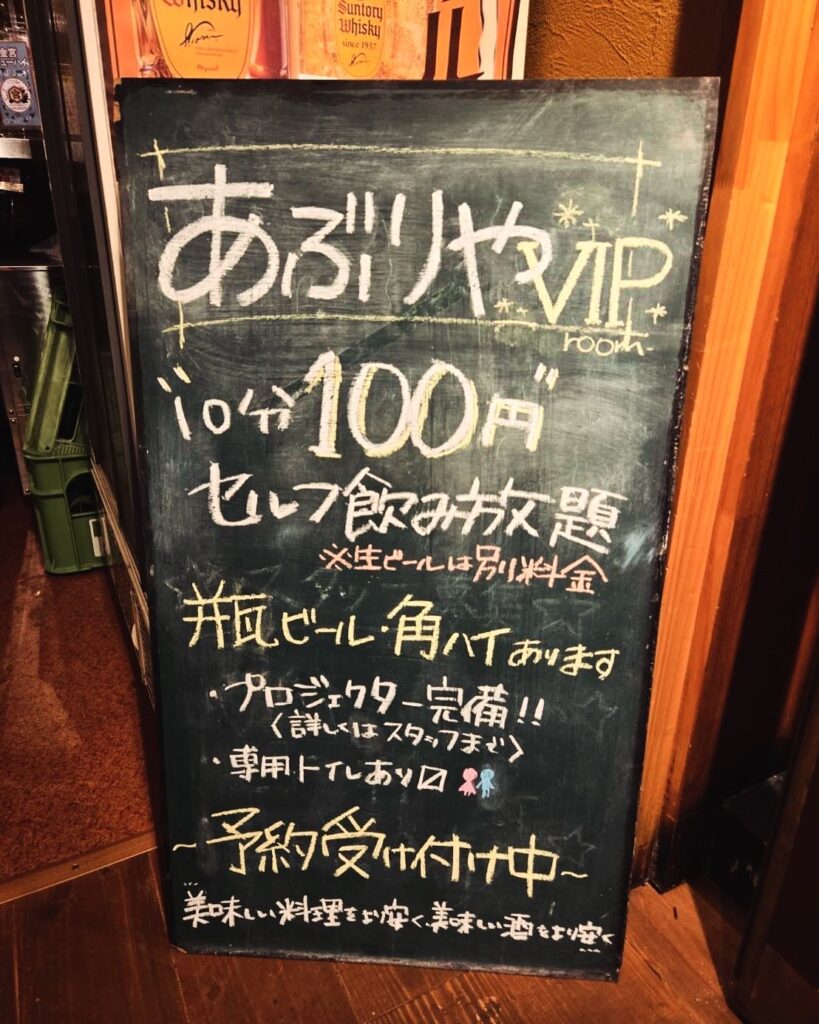 Whisky
Suntory
Whisky
since 1937
あぶりやVIP
room
"10分100円"
セルフ飲み放題
※生ビールは別料金
瓶ビール・角ハイあります
・プロジェクター完備!!
〈詳しくはスタッフまで〉
・専用トイレあり〼
~予約受け付け中~
美味しい料理をより安く、美味しい酒をより安く…